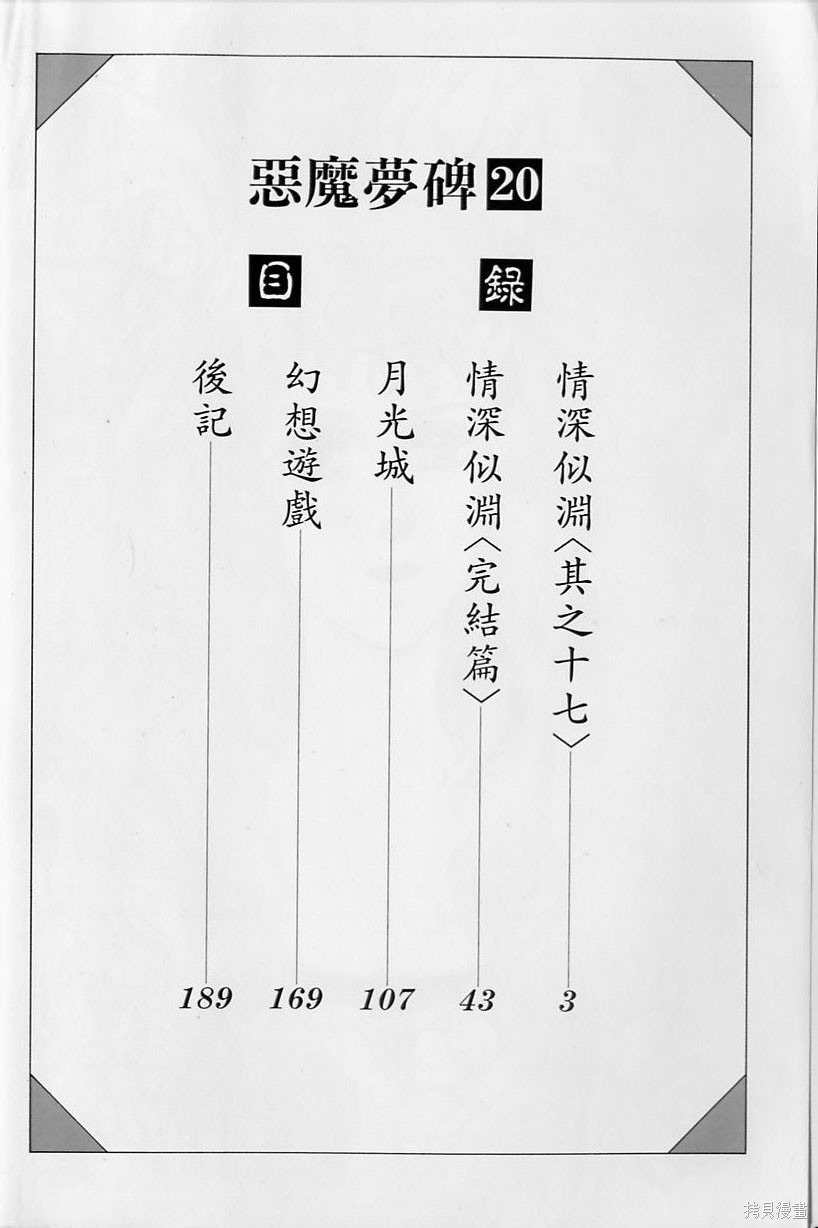 惡魔夢碑20
目錄
情深似淵〈其之十七〉3
情深似淵〈完結篇〉43
月光城107
幻想遊戲169
後記189
拷貝漫畫